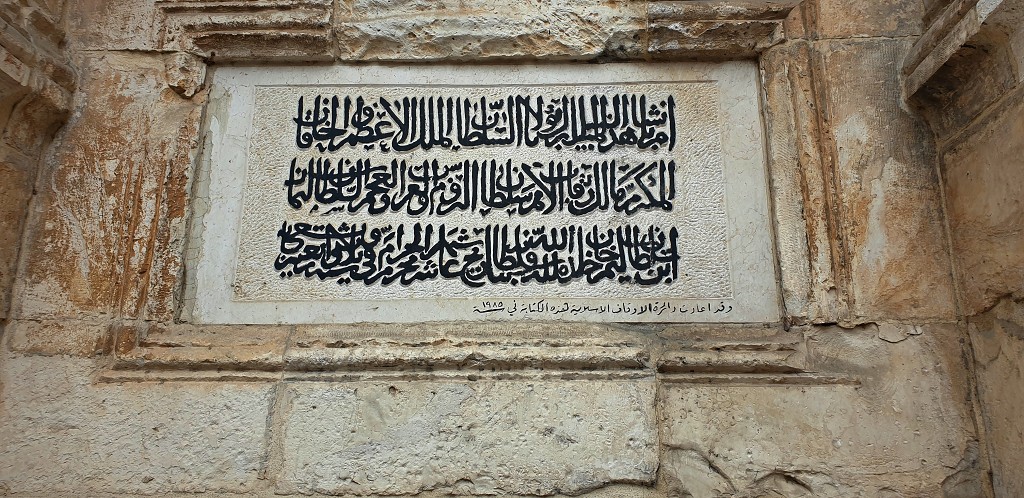 امر بانشاء هذا السبيل المبارك مولانا السلطان الملك الاعظم والخاقان
المكرم مالك رقاب الامم سلطان الروم والعرب والعجم السلطان سليمان
ابن السلطان سليم خان خلد الله ملكه وسلطانه بتاريخ عاشر شهر محرم الحرام في سنة
وقد اعادت دائرة الاوقاف الاسلامية هذه الكتابة في سنة ١٩٨٥